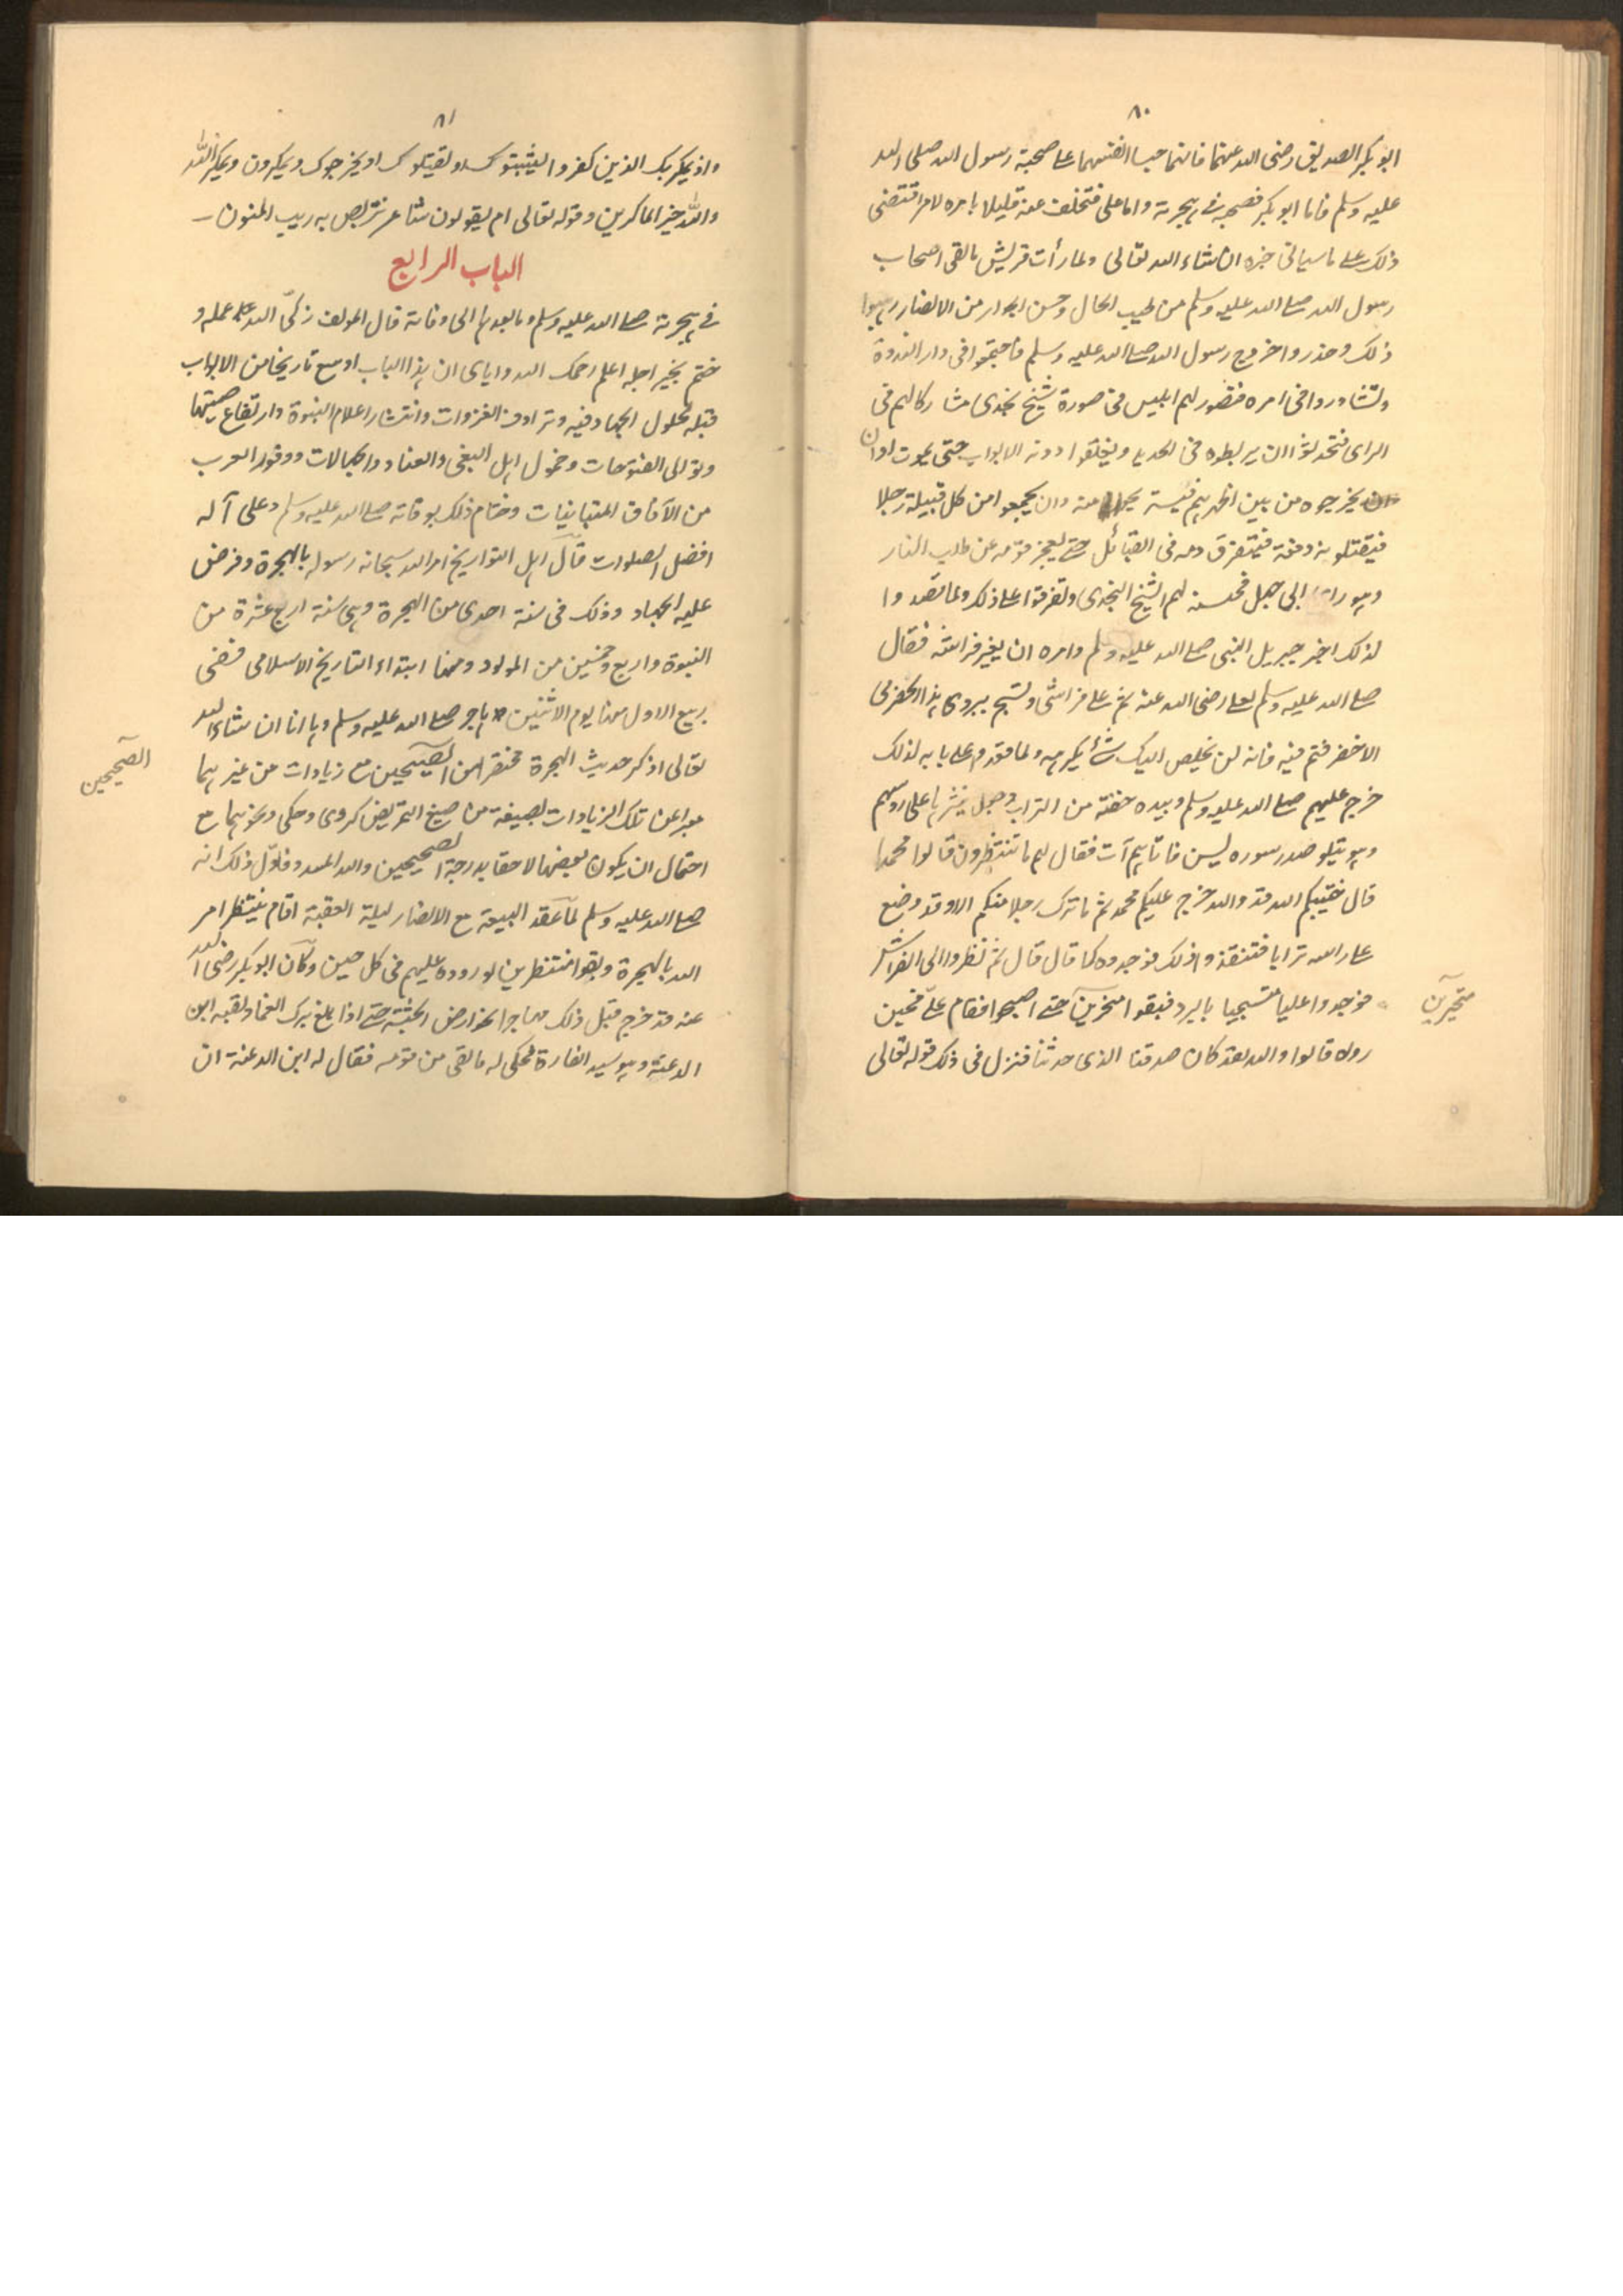 ٨٠
ابو بكر الصديق رضى الله عنهما فانهما حبسا انفسهما على صحبة رسول الله صلى الله
عليه وسلم فاما ابو بكر فصحبه فى هجرته واما على فتخلف عنه قليلا بامره لامر اقتضى
ذلك على ما سياتى خبره ان شاء الله تعالى ولما رأت قريش ما لقى اصحاب
رسول الله صلى الله عليه وسلم من طيب الحال وحسن الجوار من الانصار رهبوا
ذلك وحذروا خروج رسول الله صلى الله عليه وسلم فاجتمعوا فى دار الندوة
وتشاوروا فى امره فتصور لهم ابليس فى صورة شيخ نجدى مشاركا لهم فى
الراى فتحدثوا ان يربطوه فى الحديد ويغلقوا دونه الابواب حتى يموت او ان
يخرجوه من بين اظهرهم فيستريحوا منه وان يجمعوا من كل قبيلة رجلا
فيقتلونه دفعة فيتفرق دمه فى القبائل حتى يعجز قومه عن طلب الثار
وهو راى ابى جهل فحسنه لهم الشيخ النجدى وتفرقوا على ذلك ولما تصدوا
لذلك اخبر جبريل النبى صلى الله عليه وسلم وامره ان يغير فراشه فقال
صلى الله عليه وسلم لعلى رضى الله عنه نم على فراشى وتسج ببردى هذا الحضرمى
الاخضر فنم فيه فانه لن يخلص اليك شئ يكرهه ولما قعدوا على بابه لذلك
خرج عليهم صلى الله عليه وسلم وبيده حفنة من التراب وجعل ينثرها على رؤسهم
وهو يتلو صدر سوره ليس فاتاهم آت فقال لهم ما تنتظرون قالوا محمدا
قال خيبكم الله قد والله خرج عليكم محمد ثم ما ترك رجلا منكم الا وقد وضع
على راسه ترابا فتفقدوا ذلك فوجدوه كما قال قال ثم نظروا الى الفراش
فوجدوا عليا متسجيا بالبرد فبقوا متحيرين حتى اصبحوا فقام على فحين
متحيرين
راوه قالوا والله لقد كان صدقنا الذى حدثنا فنزل فى ذلك قوله تعالى
٨١
واذ يمكر بك الذين كفروا ليثبتوك او يقتلوك او يخرجوك ويمكرون ويمكر الله
والله خير الماكرين وقوله تعالى ام يقولون شاعر نتربص به ريب المنون
الباب الرابع
فى هجرته صلى الله عليه وسلم وما بعدها الى وفاته قال المولف زكى الله عمله و
ختم بخير اجله اعلم رحمك الله واياى ان هذا الباب اوسع تاريخا من الابواب
قبله لحلول الجهاد فيه وترادف الغزوات وانتشار اعلام النبوة وارتفاع صيتها
وتوالى الفتوحات وخمول اهل البغى والعناد والجهالات ووفود العرب
من الآفاق المتباينات وختام ذلك بوفاته صلى الله عليه وسلم وعلى آله
افضل الصلوات قال اهل التواريخ امر الله سبحانه رسوله بالهجرة وفرض
عليه الجهاد وذلك فى سنة احدى من الهجرة وهى سنة اربع عشرة من
النبوة واربع وخمسين من المولد ومنها ابتداء التاريخ الاسلامى ففى
ربيع الاول منها يوم الاثنين هاجر صلى الله عليه وسلم وها انا ان شاء الله
تعالى اذكر حديث الهجرة مختصرا من الصحيحين مع زيادات من غيرهما
الصحيحين
معبرا عن تلك الزيادات بصيغة من صيغ التمريض كروى وحكى ونحوهما مع
احتمال ان يكون بعضها لاحقا بدرجة الصحيحين والله المسدد فاول ذلك انه
صلى الله عليه وسلم لما عقد البيعة مع الانصار ليلة العقبة اقام ينتظر امر
الله بالهجرة وبقوا منتظرين لوروده عليهم فى كل حين وكان ابو بكر رضى الله
عنه قد خرج قبل ذلك مهاجرا نحو ارض الحبشة حتى اذا بلغ برك الغماد لقيه ابن
الدغنة وهو سيد القارة فحكى له ما لقى من قومه فقال له ابن الدغنة ان